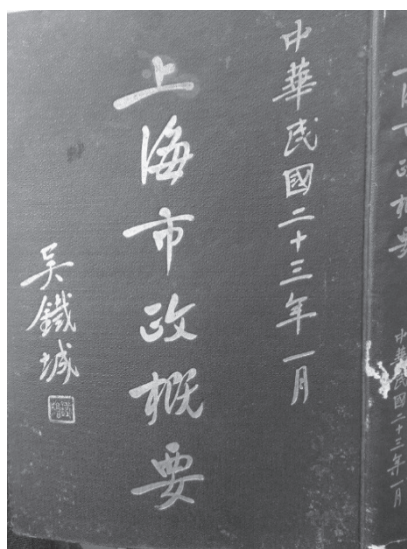 中華民國二十三年一月
上海市政概要
吳鐵城
上海市政概要
中華民國二十三年一月